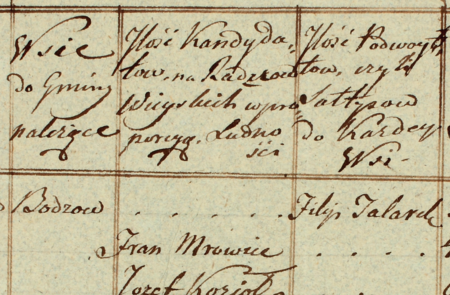 Wsie
do Gminy
należące
Ilość Kandyda-
tow, na Radzców
Wieyskich w pro=
porcyą. Ludno
ści
Ilość Podwoyt,
tow, czyli
Sołtysow
do Kazdey
Wsi.
Bodzow . . . . . Filip Talarek
Fran Mrowiec . . . .
Jozef Kozioł